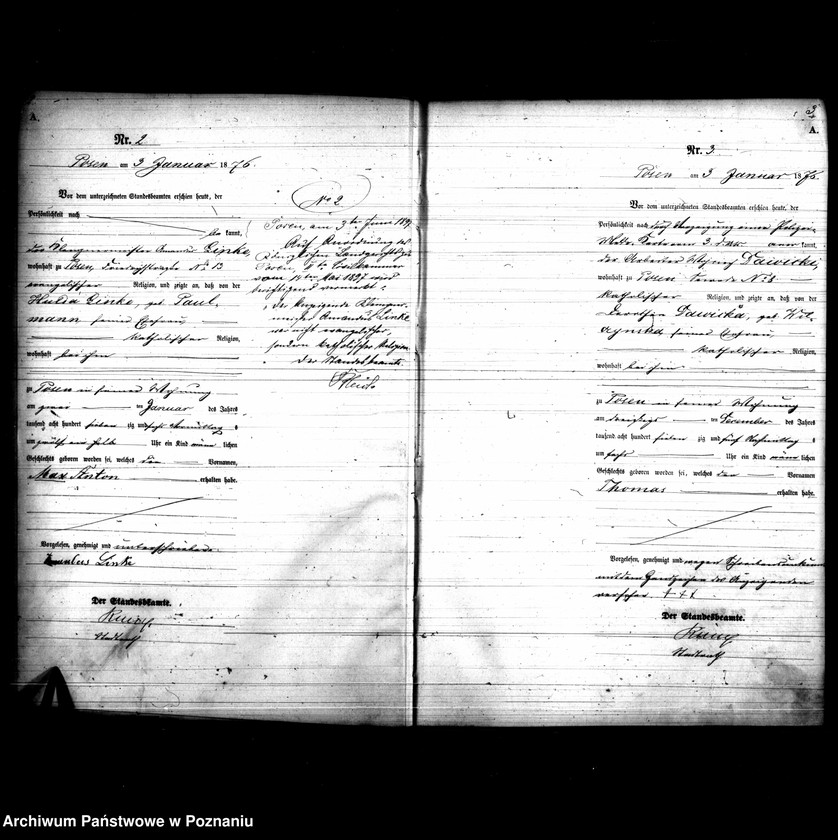 A.
Nr. 2
Posen am 3 Januar 1876.
Vor dem unterzeichneten Standesbeamten erschien heute, der
Persönlichkeit nach
be kannt,
der Klempnermeister Linke,
wohnhaft zu Posen, Friedrichstraße No 13
evangelischer Religion, und zeigte an, daß von der
Hulda Linke, geb. Paul-
mann seiner Ehefrau
katholischer Religion,
wohnhaft bei ihm
zu Posen in seiner Wohnung
am zwei ten Januar des Jahres
tausend acht hundert sieben zig und sechs Vormittag s
um zwölf ein halb Uhr ein Kind männ lichen
Geschlechts geboren worden sei, welches den Vornamen,
Max Anton erhalten habe.
Vorgelesen, genehmigt und unterschrieben
Linke
Der Standesbeamte.
Stadtrath
No 2
Posen, am 3ten Juni 189
Auf Anordnung des
Königlichen Landgerichts zu
Posen, Civilkammer
vom Mai 189 wird
berichtigend vermerkt:
der Anzeigende Klempner-
meister Linke
nicht evangelischer,
sondern katholischer Religion.
Der Standesbeamte.
3
A.
Nr. 3
Posen am 3 Januar 1876.
Vor dem unterzeichneten Standesbeamten erschien heute, der
Persönlichkeit nach durch eines Polizei-
3. aner kannt,
der Arbeiter Dawicki,
wohnhaft zu Posen No 8
katholischer Religion, und zeigte an, daß von der
Dorothea Dawicka, geb.
seiner Ehefrau
katholischer Religion,
wohnhaft bei ihm
zu Posen in seiner Wohnung
am dreißigs ten Dezember des Jahres
tausend acht hundert sieben zig und fünf Nachmittag s
um sechs Uhr ein Kind männ lichen
Geschlechts geboren worden sei, welches den Vornamen
Thomas erhalten habe.
Vorgelesen, genehmigt und wegen Schreibensunkunde
mit dem Handzeichen des Anzeigenden
versehen + + +
Der Standesbeamte.
Stadtrath
Archiwum Państwowe w Poznaniu